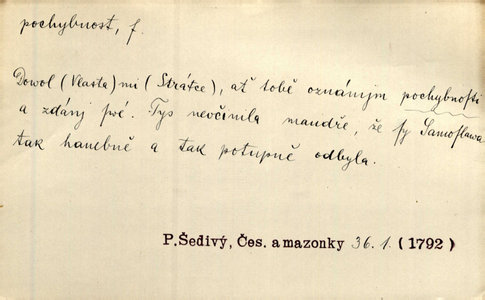 pochybnost, f.
Dowol (Vlasta) mi (Strátce), ať tobě oznámjm pochybnosti
a zdánj swé. Tys nevčinila maudře, že sy Samoslawa
tak hanebně a tak potupně odbyla.
P. Šedivý, Čes. amazonky 36.1. (1792)